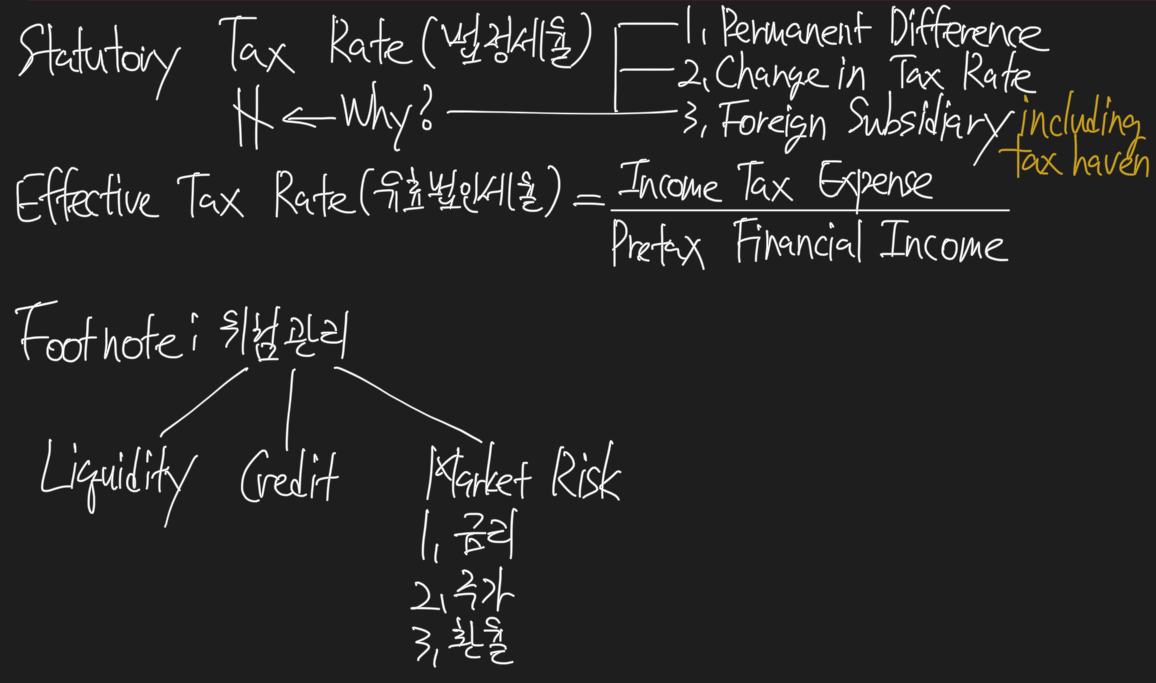 Statutory Tax Rate (법정세율)
1. Permanent Difference
2. Change in Tax Rate
3. Foreign Subsidiary including tax haven
← Why?
Effective Tax Rate (유효법인세율) = Income Tax Expense
Pretax Financial Income
Footnote: 위험관리
Liquidity Credit Market Risk
1. 금리
2. 주가
3. 환율